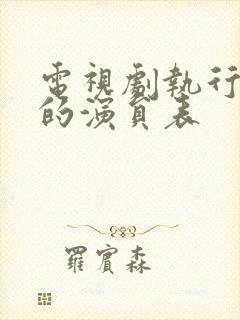 電視劇執行
的演員表
羅賓森